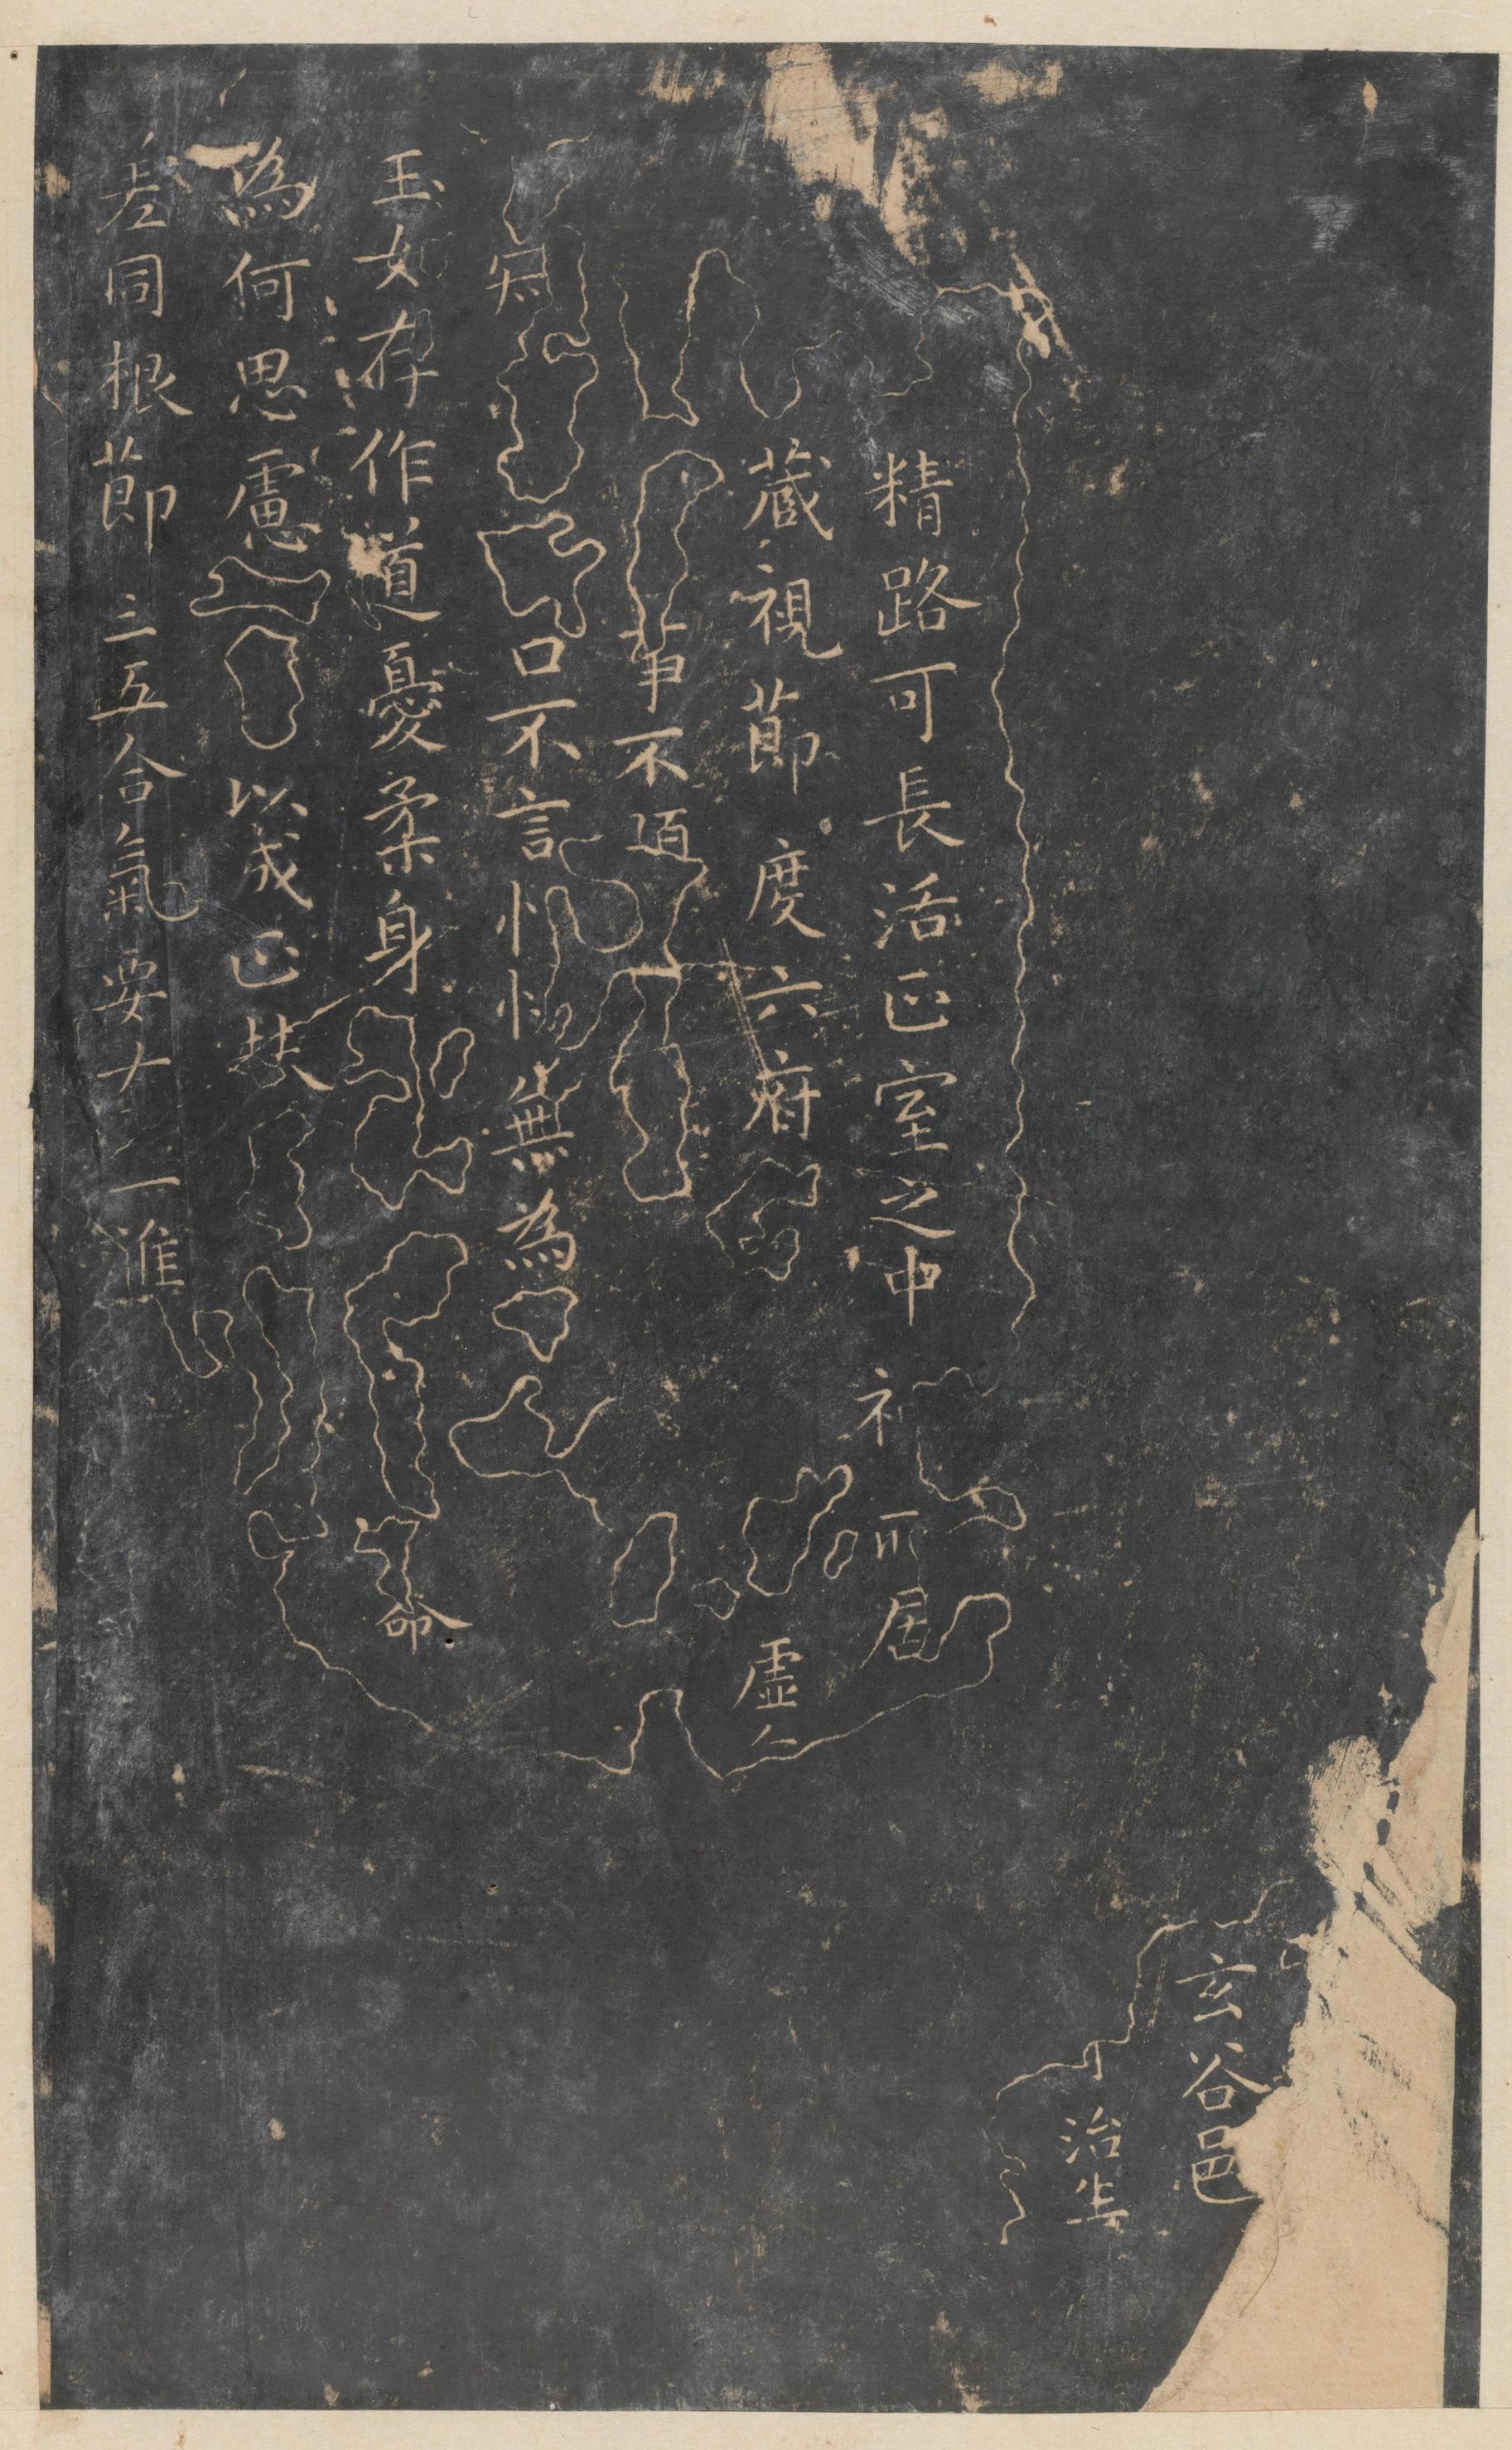 玄谷邑
治生
精路可長活正室之中神所居
藏視節度六府虛
事不
口不言恬惔無為
玉女存作道憂柔身命
為何思慮以成正扶
老同根節三五合氣要大一誰